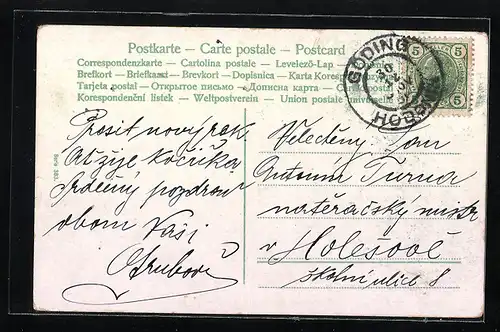 Postkarte – Carte postale – Postcard
Correspondenzkarte – Cartolina postale – Levelező-Lap –
Brefkort – Briefkaart – Brevkort – Dopisnica – Karta Korespon
Tarjeta postal – Открытое письмо – Дописна карта –
Korespondenční lístek – Weltpostverein – Union postale universelle
GÖDING
HODONÍN
5 5
5 5
Prosit nový rok
Ať žije kočička
Srdečný pozdrav
oboum Vaši
Otrubovi
Veledčený Pan
Antonín
natěračský mistr
v Holešově
školní ulice 8